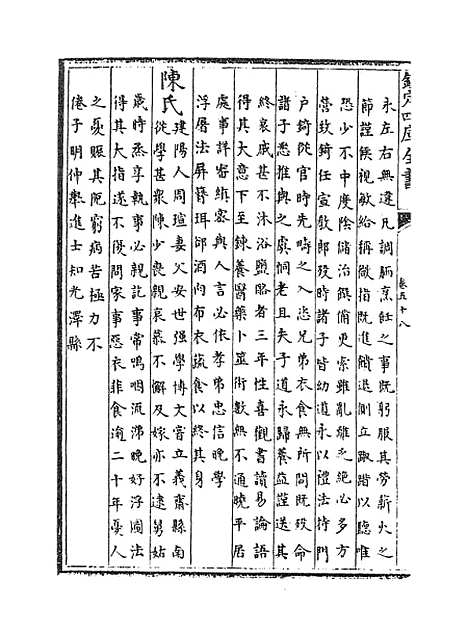 欽定四庫全書
卷五十八
永左右無違凡調膳烹飪之事既躬服其勞薪火之
節謹候視敏給稱微指既進饋退側立敬踖以聽唯
恐少不中度陰儲治饌備更索雖亂離乏絶必多方
營致錡任宣敎郎歿時諸子皆幼道永以禮法持門
户錡從官時先時之入㳒兄弟衣食無所問既歿命
諸子悉推與之虞恫老且夫于道永歸養益謹送其
終哀戚甚不沐浴鹽酪者三年性喜觀書讀易論語
得其大意下至錬養醫藥卜筮術數無不通曉平居
處事詳審縝密與人言必依孝弟忠信晚學
浮屠法屏簪珥卻酒肉布衣蔬食以終其身
陳氏建陽人周瑄妻父安世强學博文嘗立義齋縣南
從學甚衆陳少喪親哀慕不懈及嫁亦不逮舅姑
歲時烝享執事必親記事常嗚咽流涕晚好浮圖法
得其大指遂不復問家事惡衣菲食逾二十年憂人
之憂賑其阨窮病苦極力不
倦子明仲舉進士知光澤縣